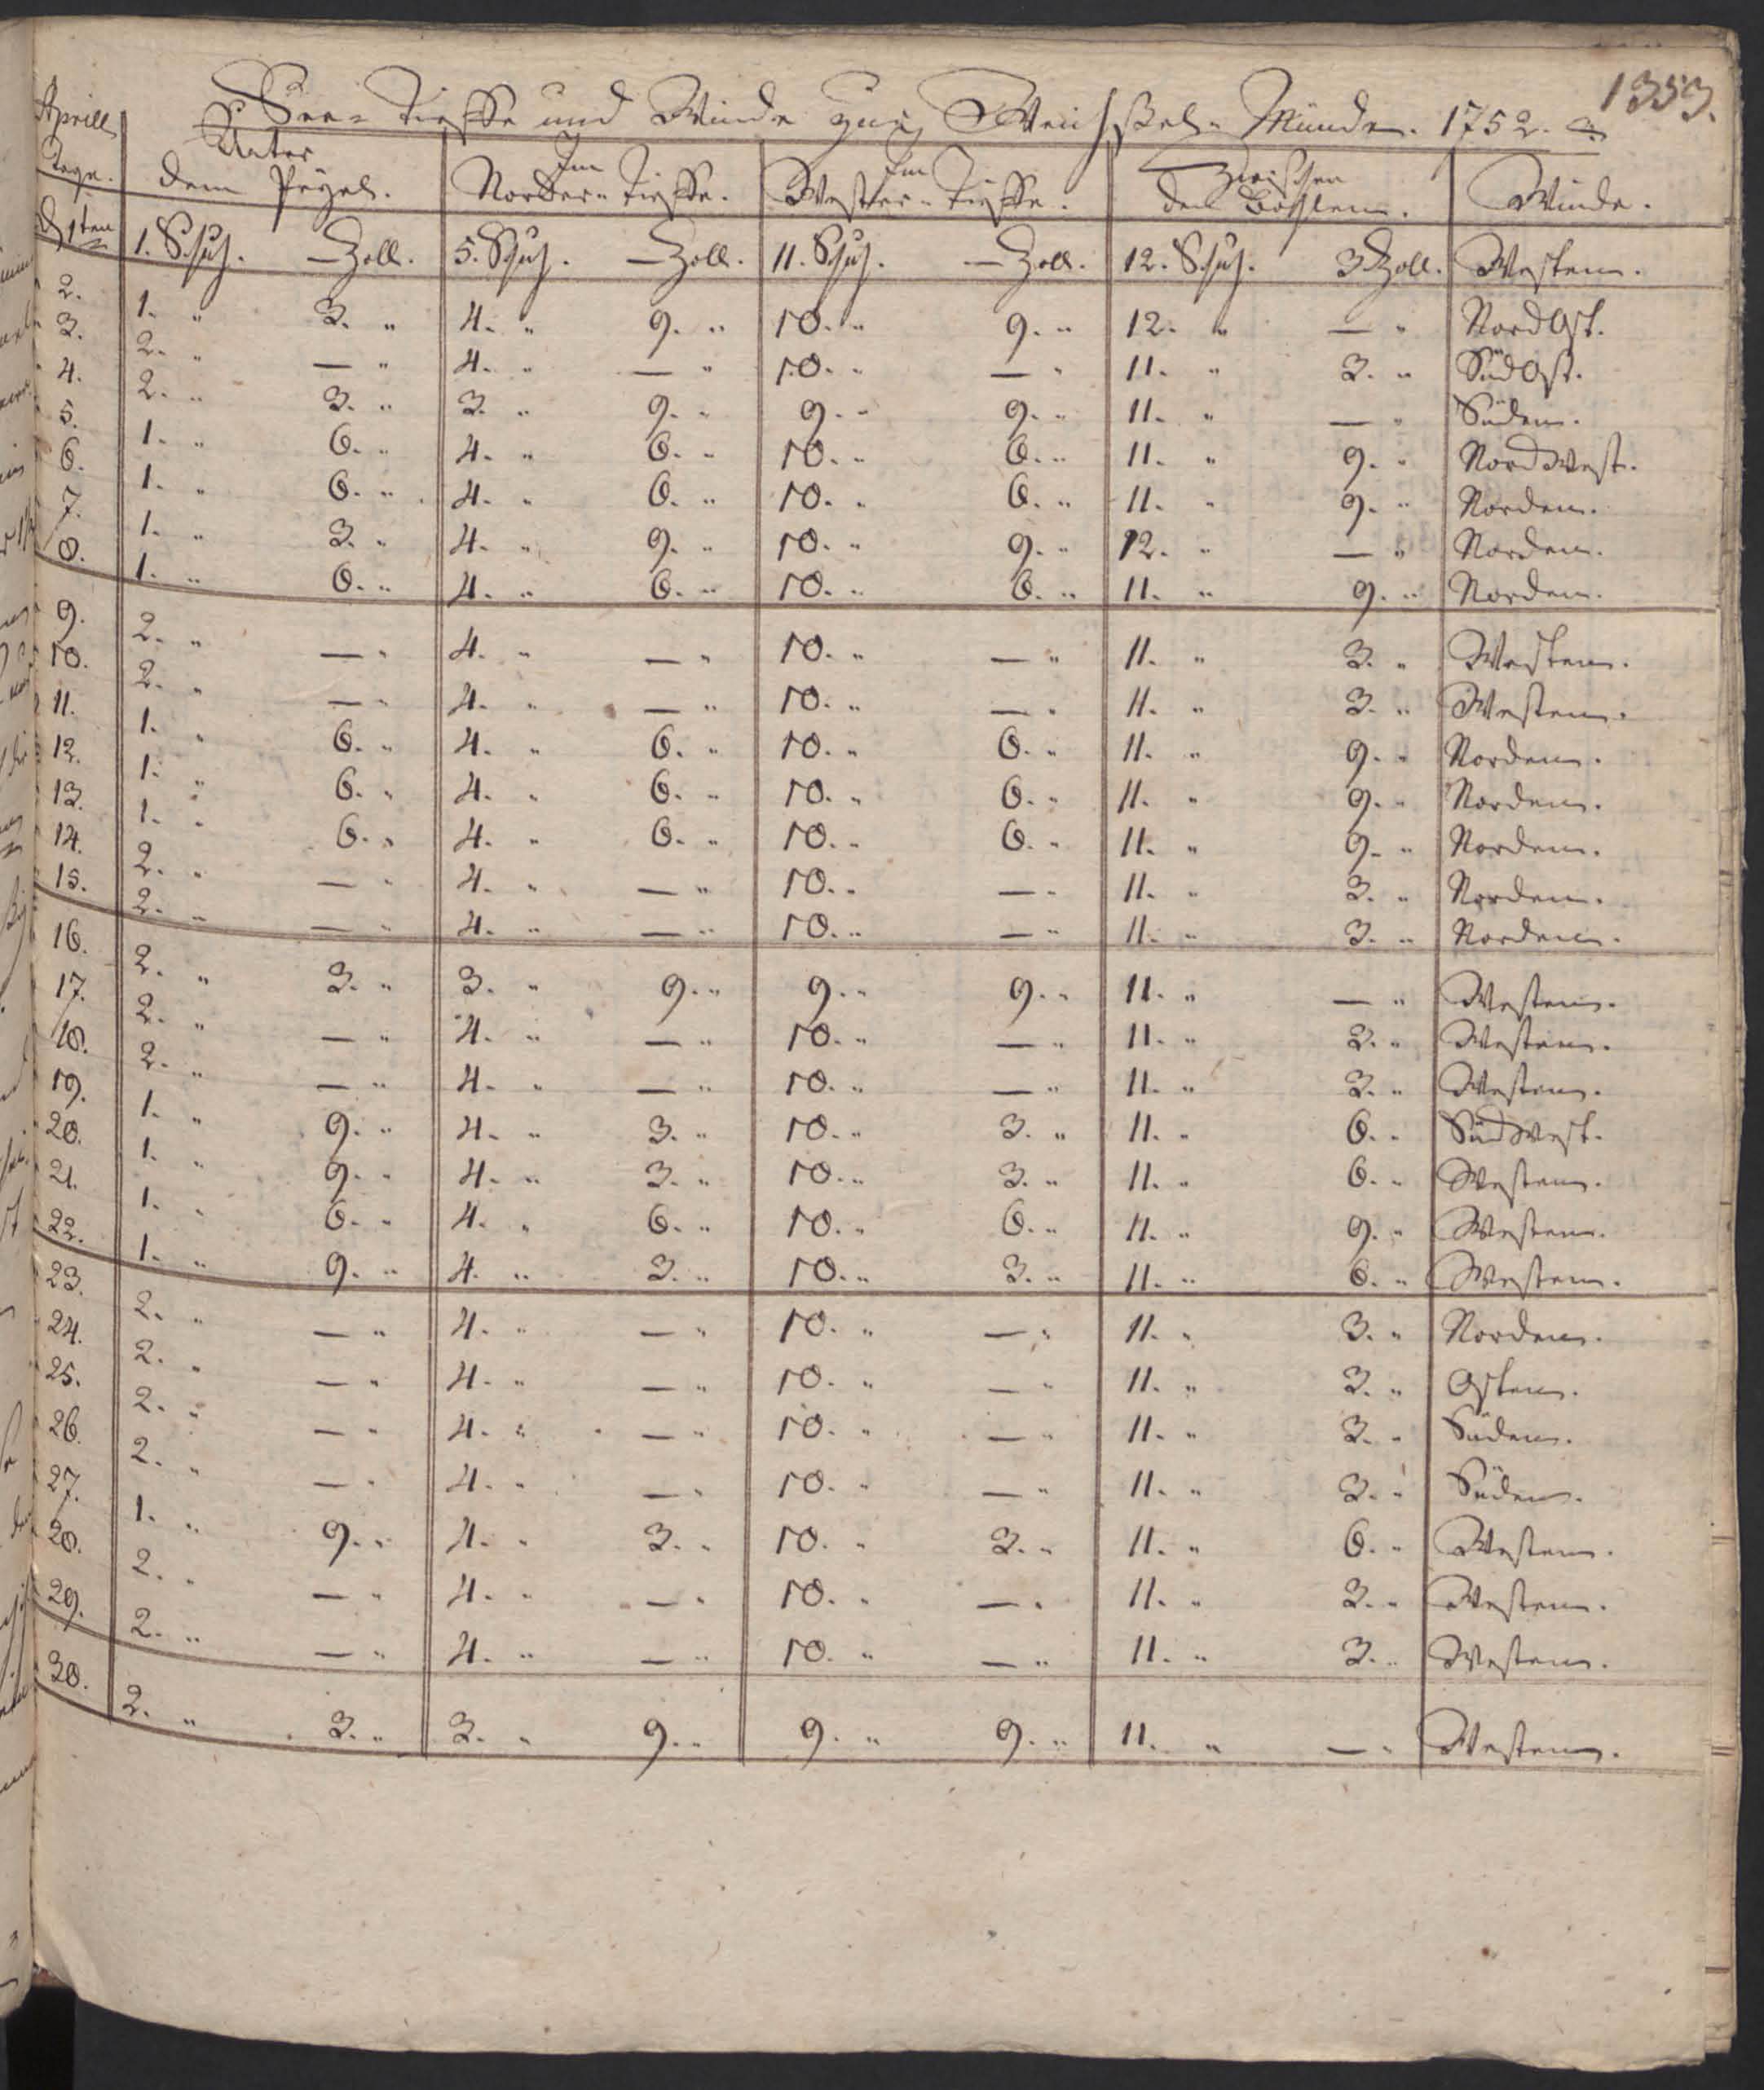 1353.
See-Tieffe und Winde zur Weichsel-Münde. 1752.
Aprill Tage. | Unter dem Peyel. | Im Norder-Tieffe. | Im Wester-Tieffe. | Zwischen den Bohlen. | Winde.
d 1ten | 1. Schuh. — Zoll. | 5. Schuh. — Zoll. | 11. Schuh. — Zoll. | 12. Schuh. 3 Zoll. | Westen.
2. | 1. " 3. " | 4. " 9. " | 10. " 9. " | 12. " — " | NordOst.
3. | 2. " — " | 4. " — " | 10. " — " | 11. " 3. " | SüdOst.
4. | 2. " 3. " | 3. " 9. " | 9. " 9. " | 11. " — " | Süden.
5. | 1. " 6. " | 4. " 6. " | 10. " 6. " | 11. " 9. " | NordWest.
6. | 1. " 6. " | 4. " 6. " | 10. " 6. " | 11. " 9. " | Norden.
7. | 1. " 3. " | 4. " 9. " | 10. " 9. " | 12. " — " | Norden.
8. | 1. " 6. " | 4. " 6. " | 10. " 6. " | 11. " 9. " | Norden.
9. | 2. " — " | 4. " — " | 10. " — " | 11. " 3. " | Westen.
10. | 2. " — " | 4. " — " | 10. " — " | 11. " 3. " | Westen.
11. | 1. " 6. " | 4. " 6. " | 10. " 6. " | 11. " 9. " | Norden.
12. | 1. " 6. " | 4. " 6. " | 10. " 6. " | 11. " 9. " | Norden.
13. | 1. " 6. " | 4. " 6. " | 10. " 6. " | 11. " 9. " | Norden.
14. | 2. " — " | 4. " — " | 10. " — " | 11. " 3. " | Norden.
15. | 2. " — " | 4. " — " | 10. " — " | 11. " 3. " | Norden.
16. | 2. " 3. " | 3. " 9. " | 9. " 9. " | 11. " — " | Westen.
17. | 2. " — " | 4. " — " | 10. " — " | 11. " 3. " | Westen.
18. | 2. " — " | 4. " — " | 10. " — " | 11. " 3. " | Westen.
19. | 1. " 9. " | 4. " 3. " | 10. " 3. " | 11. " 6. " | SüdWest.
20. | 1. " 9. " | 4. " 3. " | 10. " 3. " | 11. " 6. " | Westen.
21. | 1. " 6. " | 4. " 6. " | 10. " 6. " | 11. " 9. " | Westen.
22. | 1. " 9. " | 4. " 3. " | 10. " 3. " | 11. " 6. " | Westen.
23. | 2. " — " | 4. " — " | 10. " — " | 11. " 3. " | Norden.
24. | 2. " — " | 4. " — " | 10. " — " | 11. " 3. " | Osten.
25. | 2. " — " | 4. " — " | 10. " — " | 11. " 3. " | Süden.
26. | 2. " — " | 4. " — " | 10. " — " | 11. " 3. " | Süden.
27. | 1. " 9. " | 4. " 3. " | 10. " 3. " | 11. " 6. " | Westen.
28. | 2. " — " | 4. " — " | 10. " — " | 11. " 3. " | Westen.
29. | 2. " — " | 4. " — " | 10. " — " | 11. " 3. " | Westen.
30. | 2. " 3. " | 3. " 9. " | 9. " 9. " | 11. " — " | Westen.